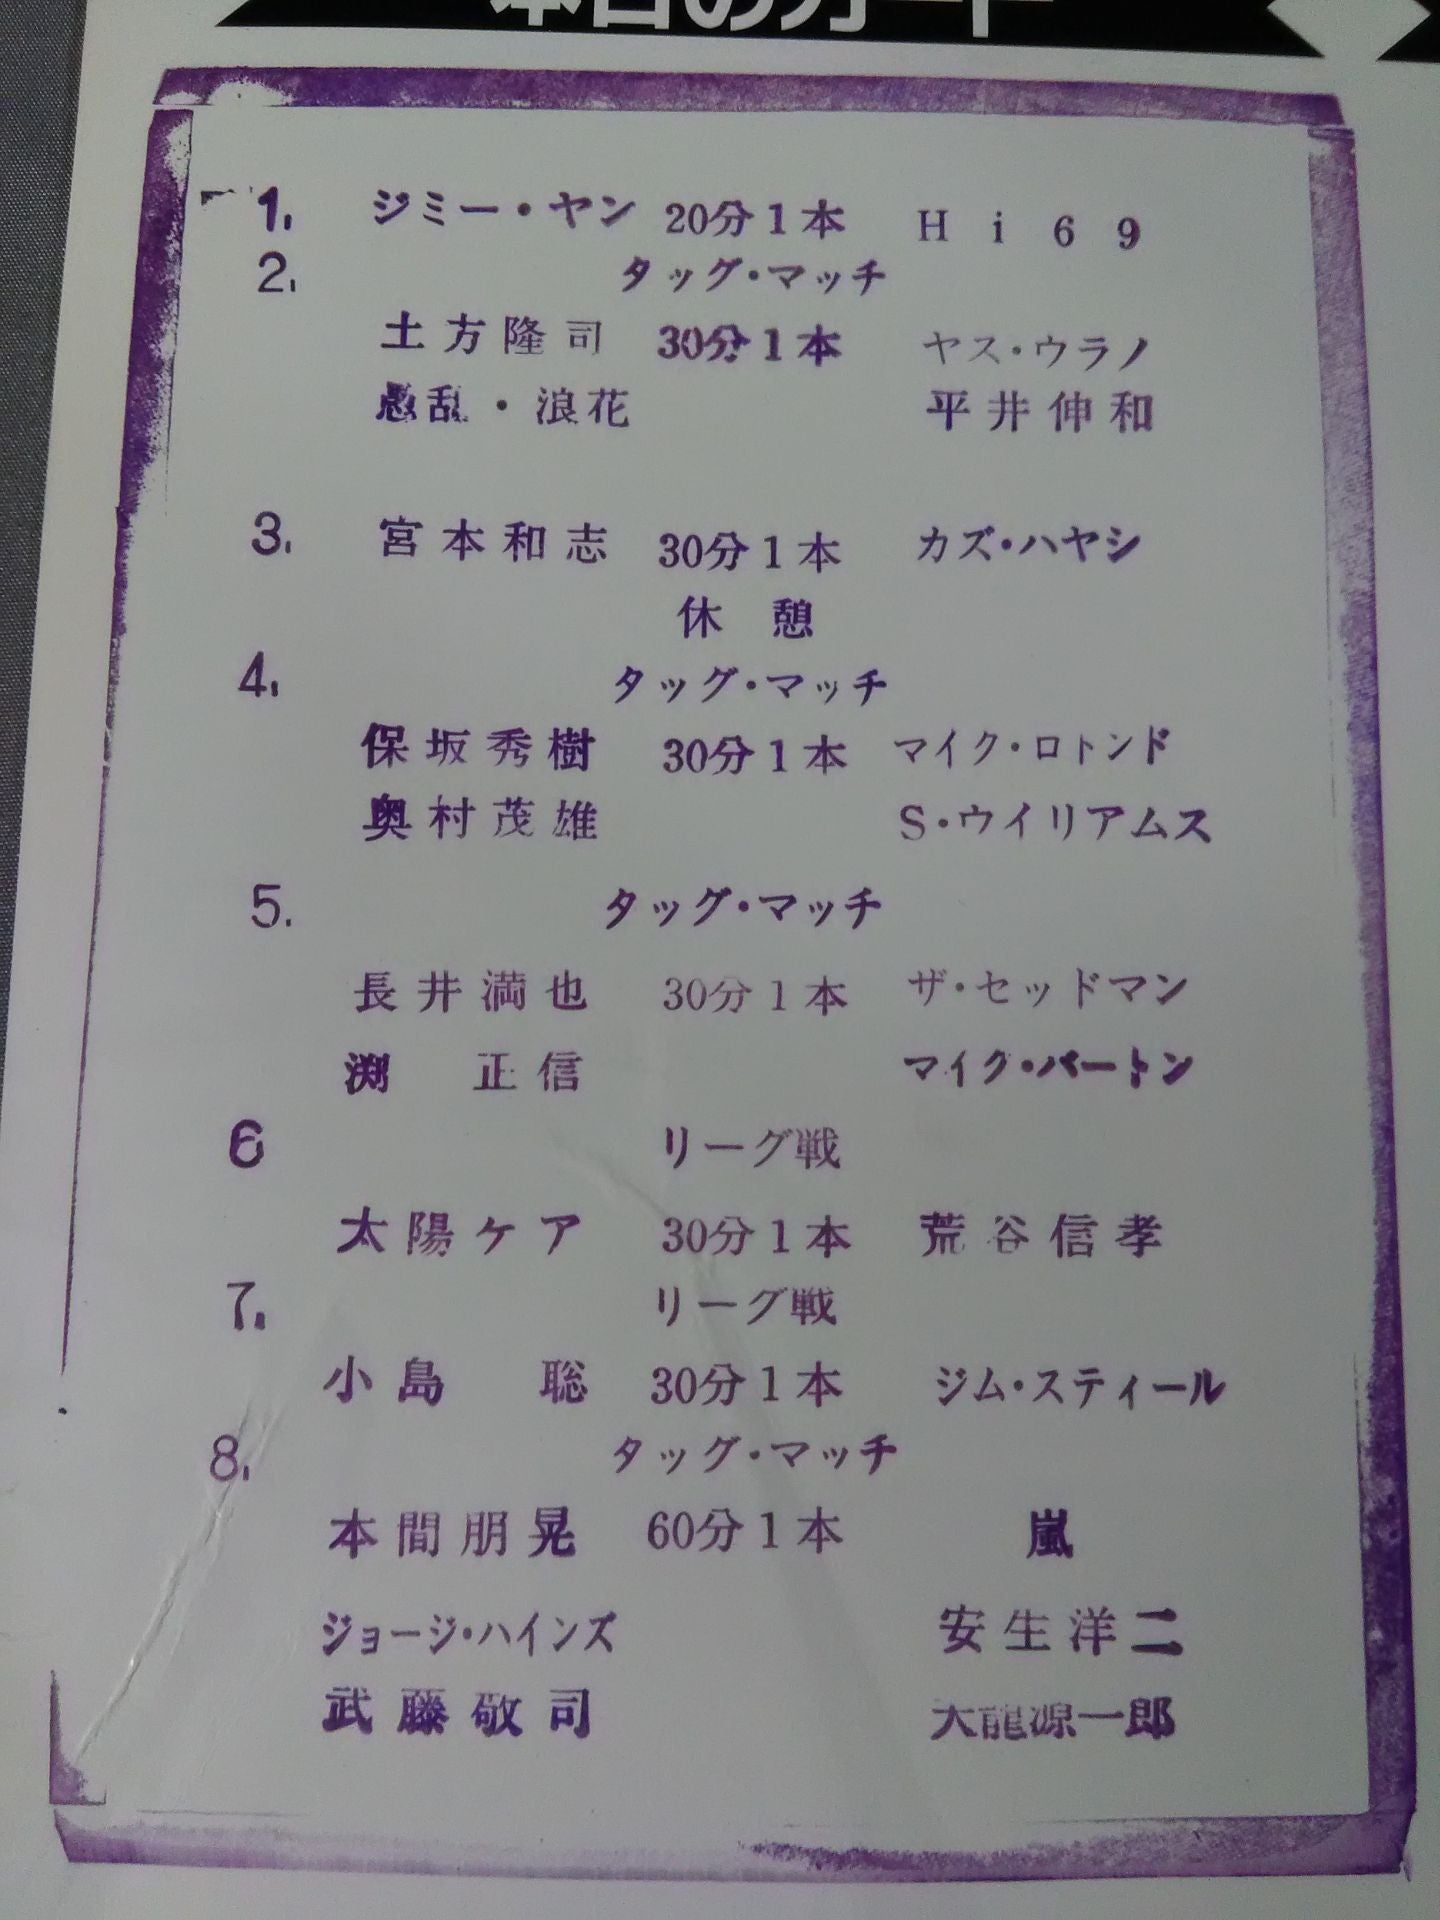 本日のカード
1. ジミー・ヤン 20分1本 Hi69
2. タッグ・マッチ
土方隆司 30分1本 ヤス・ウラノ
愚乱・浪花 平井伸和
3. 宮本和志 30分1本 カズ・ハヤシ
休憩
4. タッグ・マッチ
保坂秀樹 30分1本 マイク・ロトンド
奥村茂雄 S・ウイリアムス
5. タッグ・マッチ
長井満也 30分1本 ザ・セッドマン
渕 正信 マイク・バートン
6 リーグ戦
太陽ケア 30分1本 荒谷信孝
7. リーグ戦
小島 聡 30分1本 ジム・スティール
8. タッグ・マッチ
本間朋晃 60分1本 嵐
ジョージ・ハインズ 安生洋二
武藤敬司 天龍源一郎